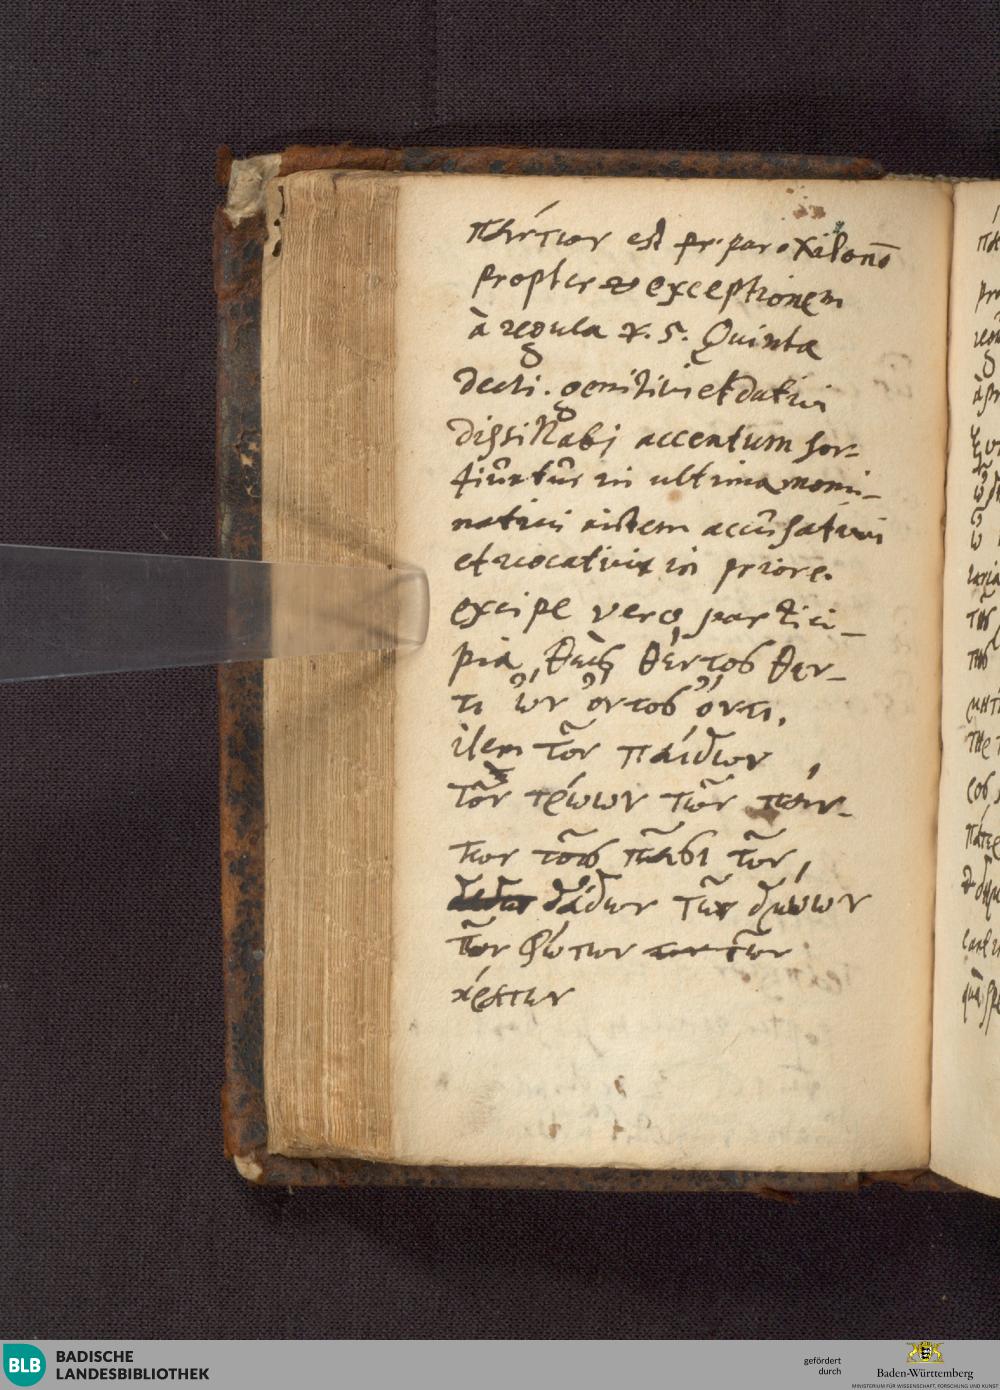 πάντων est pr. paroxitono
propter exceptionem
à regula r. 5. Quinta
decli. genitivi et dativi
dissillabi accentum sor-
tiūntūr in ultima nomi-
nativi autem accūsativi
et vocativi in priore.
excipe vero partici-
pia, θεὶς θέντος θέν-
τι ὤν ὄντος ὄντι,
item τῶν παίδων
τῶν τρώων τῶν πάν-
των τοῖς πᾶσι τῶν,
δάδων τῶν δμώων
τῶν φώτων τῶν
κράτων
BLB BADISCHE
LANDESBIBLIOTHEK
gefördert
durch
Baden-Württemberg
MINISTERIUM FÜR WISSENSCHAFT, FORSCHUNG UND KUNST